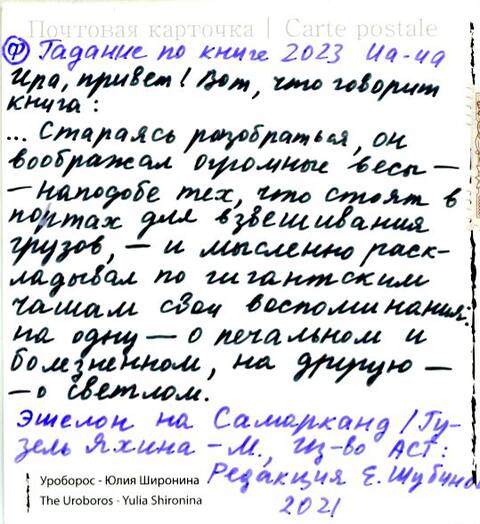 Почтовая карточка | Carte postale
Ф Гадание по книге 2023 Иа-иа
Ира, привет! Вот, что говорит
книга:
... Стараясь разобраться, он
воображал огромные весы —
— наподобе тех, что стоят в
портах для взвешивания
грузов, — и мысленно раск-
ладывал по гигантским
чашам свои воспоминания:
на одну — о печальном и
болезненном, на другую —
— о светлом.
Эшелон на Самарканд / Гу-
зель Яхина – М., Из-во АСТ:
Редакция Е. Шубиной
2021
Уроборос - Юлия Широнина
The Uroboros - Yulia Shironina